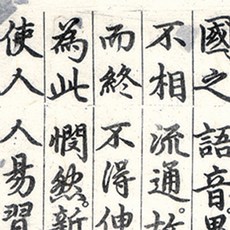 國之語音異
不相流通。故
而終不得伸
為此憫然。新
使人人易習